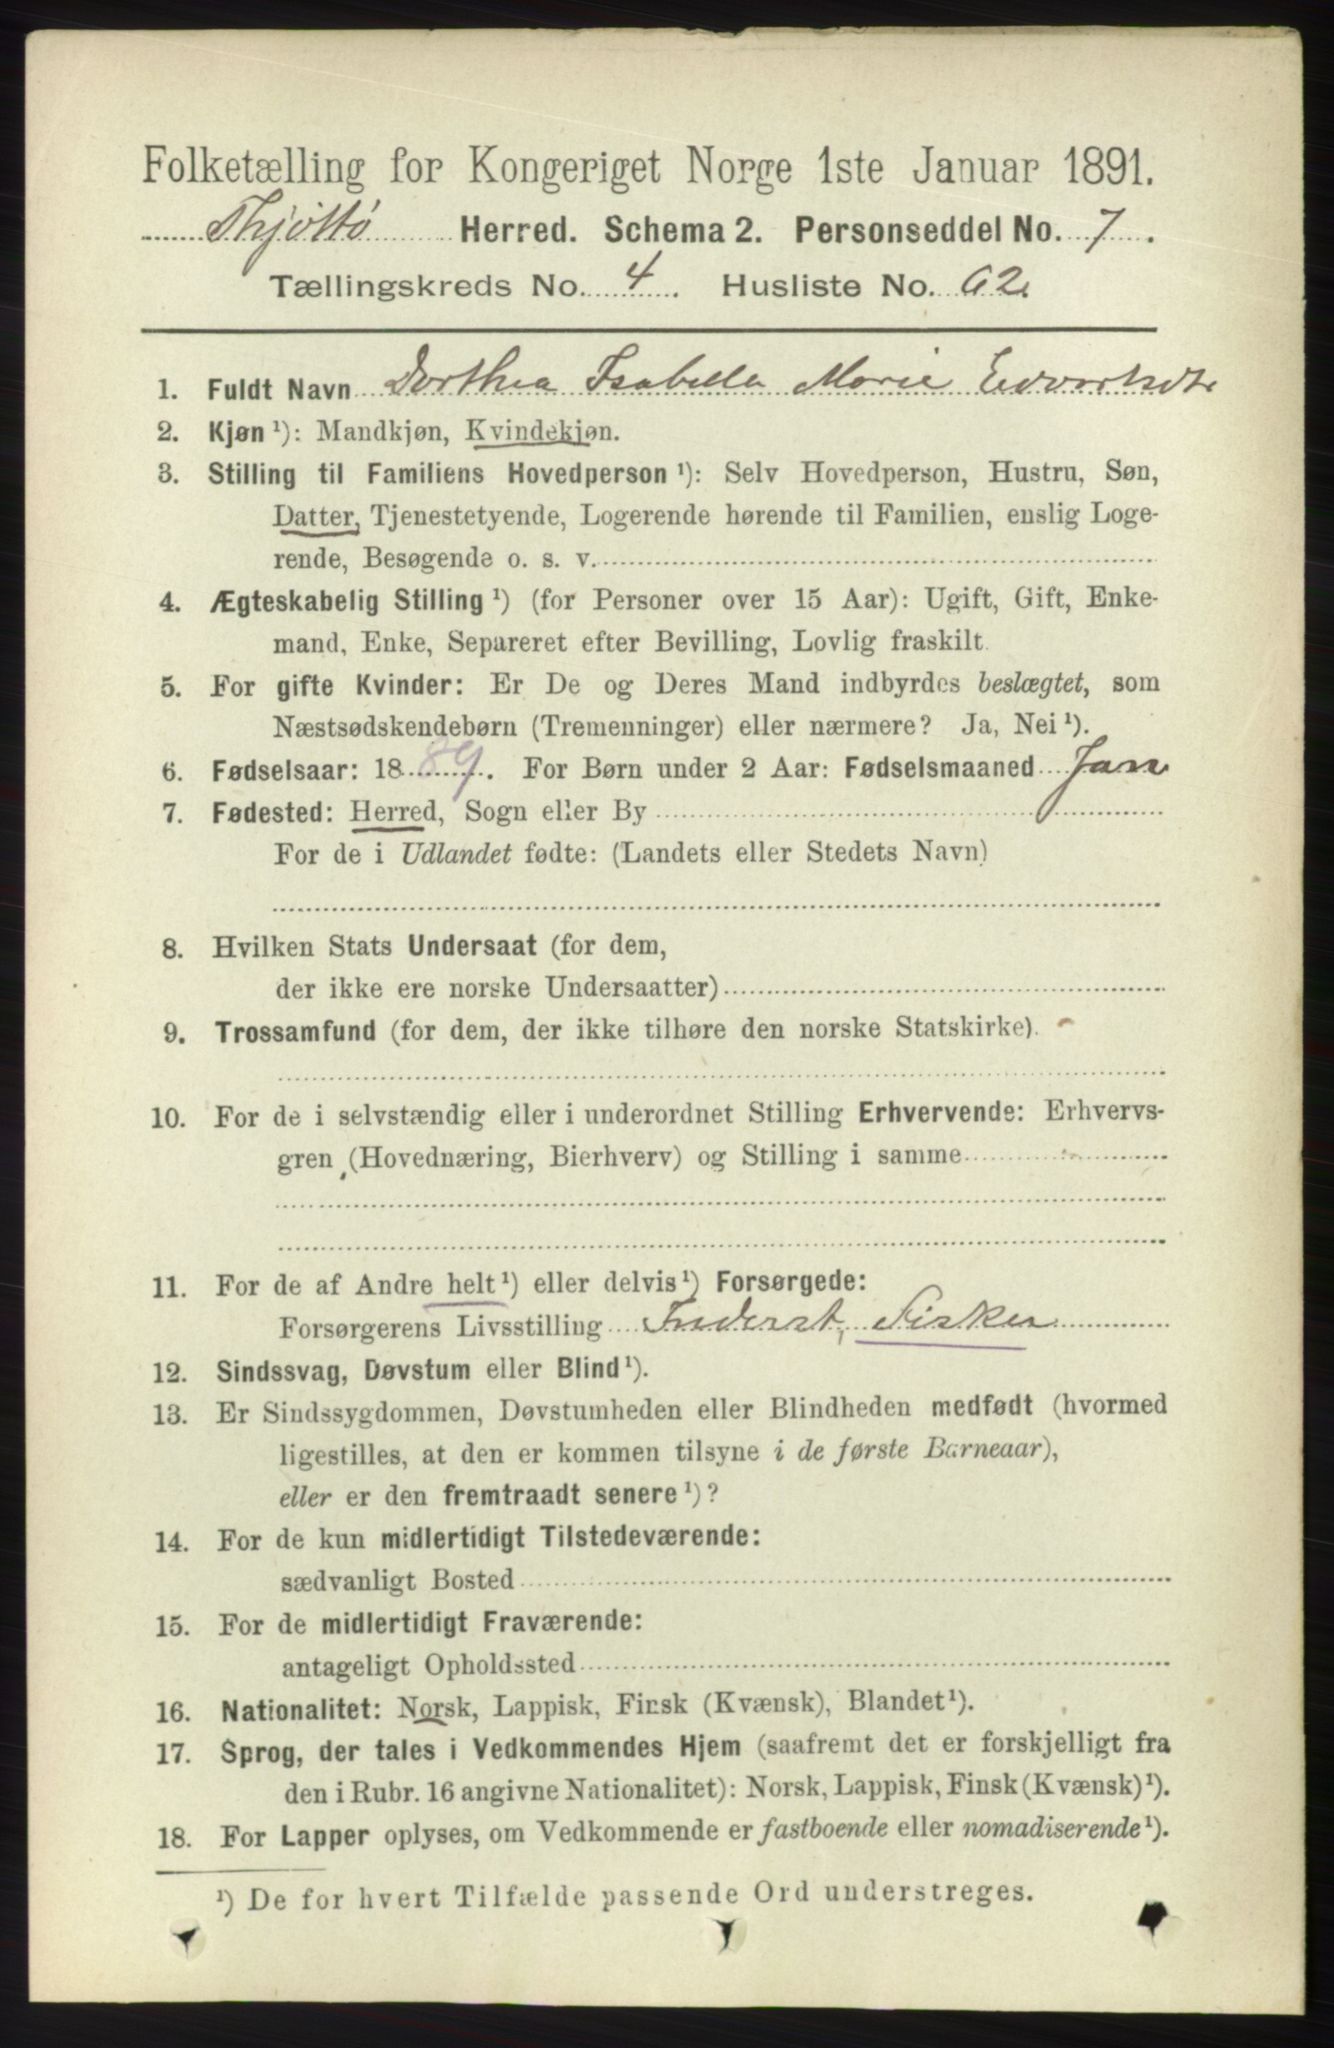 Folketælling for Kongeriget Norge 1ste Januar 1891.
Thjøttø Herred. Schema 2. Personseddel No. 7.
Tællingskreds No. 4. Husliste No. 62
1. Fuldt Navn Dorthea Isabella Marie
2. Kjøn ¹): Mandkjøn, Kvindekjøn.
3. Stilling til Familiens Hovedperson ¹): Selv Hovedperson, Hustru, Søn,
Datter, Tjenestetyende, Logerende hørende til Familien, enslig Loge-
rende, Besøgende o. s. v.
4. Ægteskabelig Stilling ¹) (for Personer over 15 Aar): Ugift, Gift, Enke-
mand, Enke, Separeret efter Bevilling, Lovlig fraskilt
5. For gifte Kvinder: Er De og Deres Mand indbyrdes beslægtet, som
Næstsødskendebørn (Tremenninger) eller nærmere? Ja, Nei ¹).
6. Fødselsaar: 1889. For Børn under 2 Aar: Fødselsmaaned Jan
7. Fødested: Herred, Sogn eller By
For de i Udlandet fødte: (Landets eller Stedets Navn)
8. Hvilken Stats Undersaat (for dem,
der ikke ere norske Undersaatter)
9. Trossamfund (for dem, der ikke tilhøre den norske Statskirke).
10. For de i selvstændig eller i underordnet Stilling Erhvervende: Erhvervs-
gren (Hovednæring, Bierhverv) og Stilling i samme
11. For de af Andre helt ¹) eller delvis ¹) Forsørgede:
Forsørgerens Livsstilling Inderst, Fisker
12. Sindssvag, Døvstum eller Blind ¹).
13. Er Sindssygdommen, Døvstumheden eller Blindheden medfødt (hvormed
ligestilles, at den er kommen tilsyne i de første Barneaar),
eller er den fremtraadt senere ¹)?
14. For de kun midlertidigt Tilstedeværende:
sædvanligt Bosted
15. For de midlertidigt Fraværende:
antageligt Opholdssted
16. Nationalitet: Norsk, Lappisk, Finsk (Kvænsk), Blandet ¹).
17. Sprog, der tales i Vedkommendes Hjem (saafremt det er forskjelligt fra
den i Rubr. 16 angivne Nationalitet): Norsk, Lappisk, Finsk (Kvænsk) ¹).
18. For Lapper oplyses, om Vedkommende er fastboende eller nomadiserende ¹).
¹) De for hvert Tilfælde passende Ord understreges.